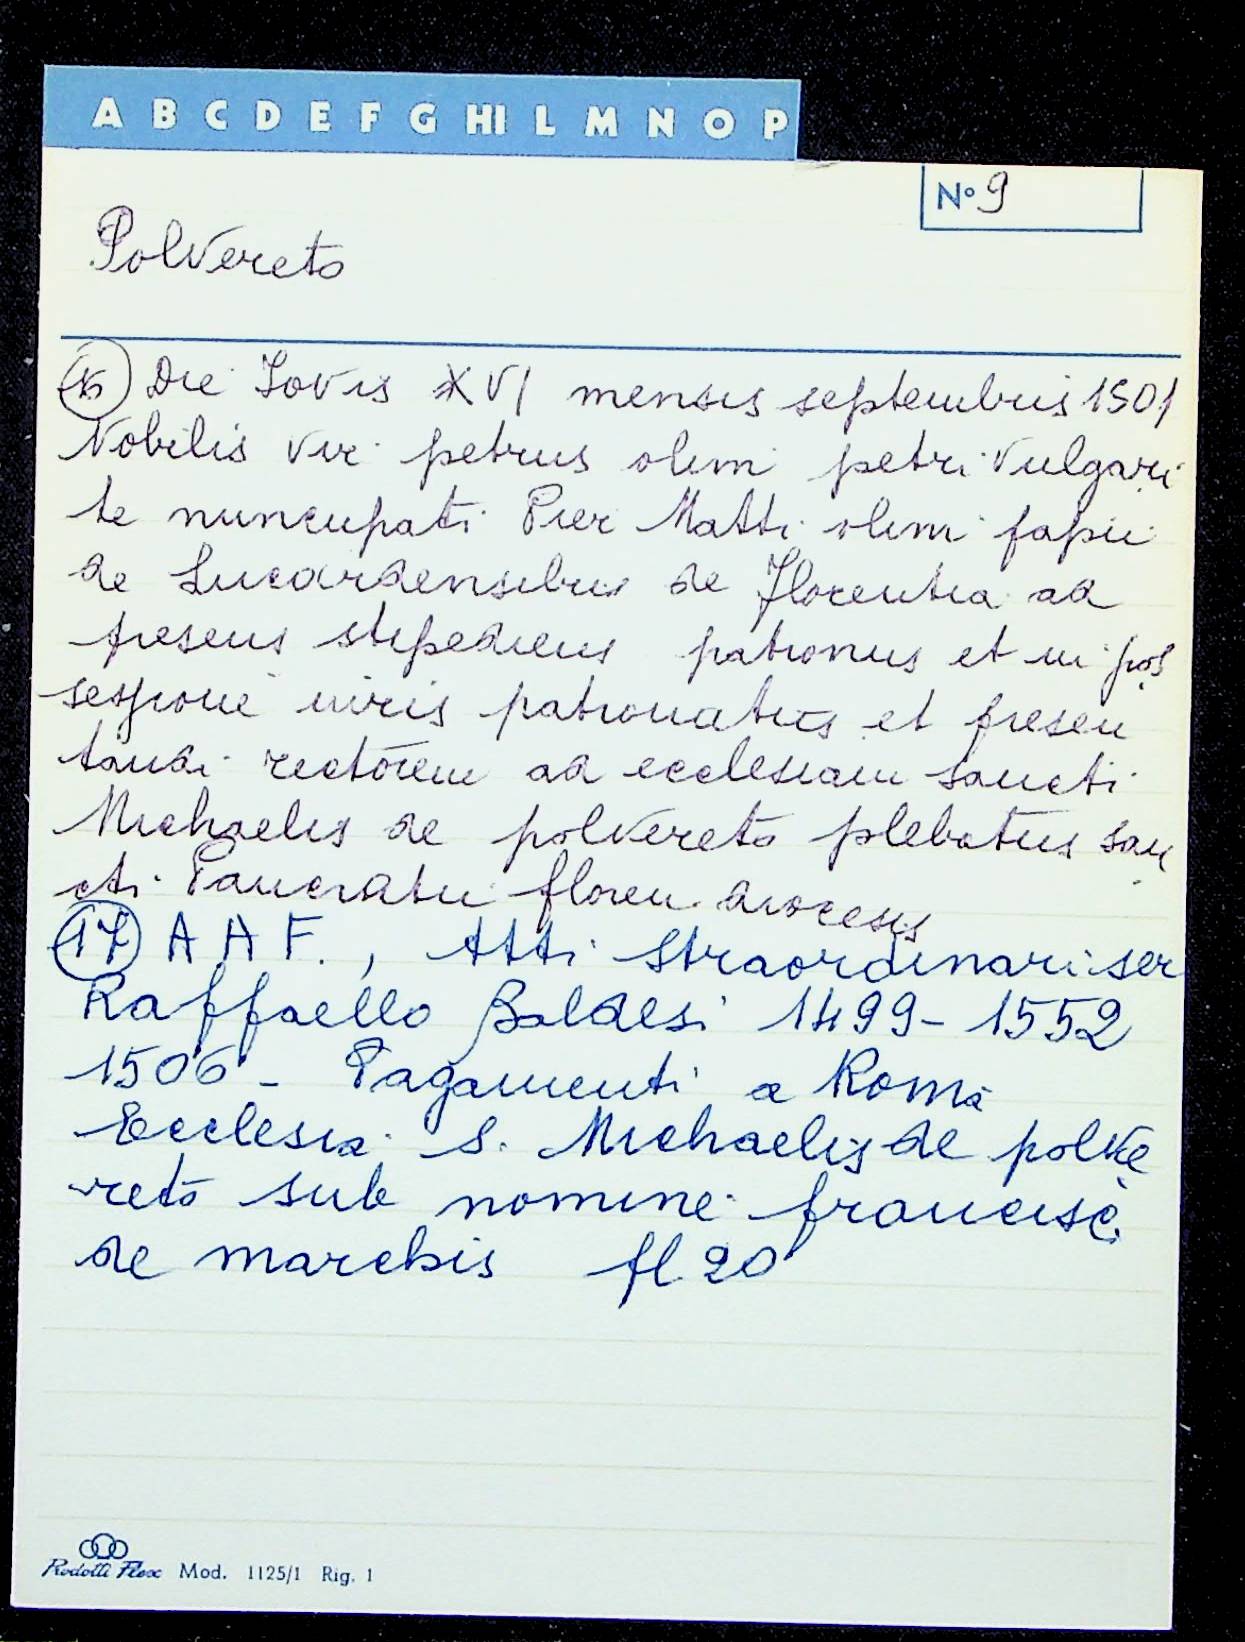 A B C D E F G HI L M N O P
N° 9
Polvereto
16 Die Iovis XVI mensis septembris 1501
Nobilis vir petrus olim petri vulgari
te nuncupati Pier Matti olim papii
de Lucardensibus de Florentia ad
presens stipediens patronus et in pos
sessione iuris patronatus et presen
tandi rectorem ad ecclesiam sancti
Michaelis de polvereto plebatus san
cti Pancratii floren diocesis
17 A A F., Atti straordinari ser
Raffaello Baldesi 1499-1552
1506 - Pagamenti a Roma
Ecclesia S. Michaelis de polve
reto sub nomine francisc.
de marchis fl 20
Rodotti Flex Mod. 1125/1 Rig. 1